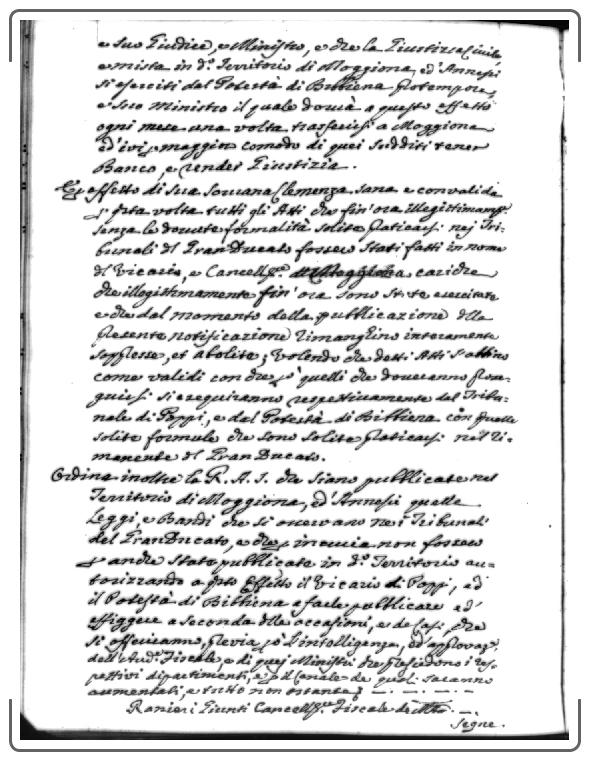 e Suo Giudice, e Ministro, e che la Giustizia Civile
e mista in d.º Territorio di Moggiona, ed' Annessi
si eserciti dal Potestà di Bibbiena protempore,
e Suo Ministro il quale dovrà a questo effetto
ogni mese una volta trasferirsi a Moggiona
ed' ivi maggior comodo di quei Sudditi tener
Banco, e render Giustizia.
Per effetto di Sua Sovrana Clemenza sana e convalida
p. q̃sta volta tutti gli Atti che fin' ora illegittimam.e
senza le dovute formalità solite praticarsi nej Tri-
bunali del Gran Ducato fossero Stati fatti in nome
di Vicario, e Cancell.re cariche
che illegittimamente fin' ora sono state esercitate
e che dal momento della pubblicazione dlla
presente notificazione rimanghino interamente
soppresse, et abolite; Volendo che detti Atti s'abbino
come validi con che p quelli che doveranno prose-
guirsi si eseguiranno respettivamente dal Tribu-
nale di Poppi, e dal Potestà di Bibbiena con quelle
solite formule che sono solite praticarsi nel ri-
manente del Gran Ducato.
Ordina inoltre la R. A. S. che siano pubblicate nel
Territorio di Moggiona, ed' Annessi quelle
Leggi, e Bandi che si osservano nei Tribunali
del Gran Ducato, e che non fossero
p anche state pubblicate in d.º Territorio au=
torizzando a q̃sto Effetto il Vicario di Poppi, ed'
il Potestà di Bibbiena a farle pubblicare ed'
affiggere a seconda dlle occasioni, e de Casi, che
si offeriranno, previa p l'intelligenza, ed' approvaz.e
dell'Aud.e Fiscale, e di quej Ministri che presiedono i res=
pettivi dipartimenti, e p il Canale de quali saranno
aumentati, e tutto non ostante
Ranieri Giunti Cancell.re Fiscale
Segue.